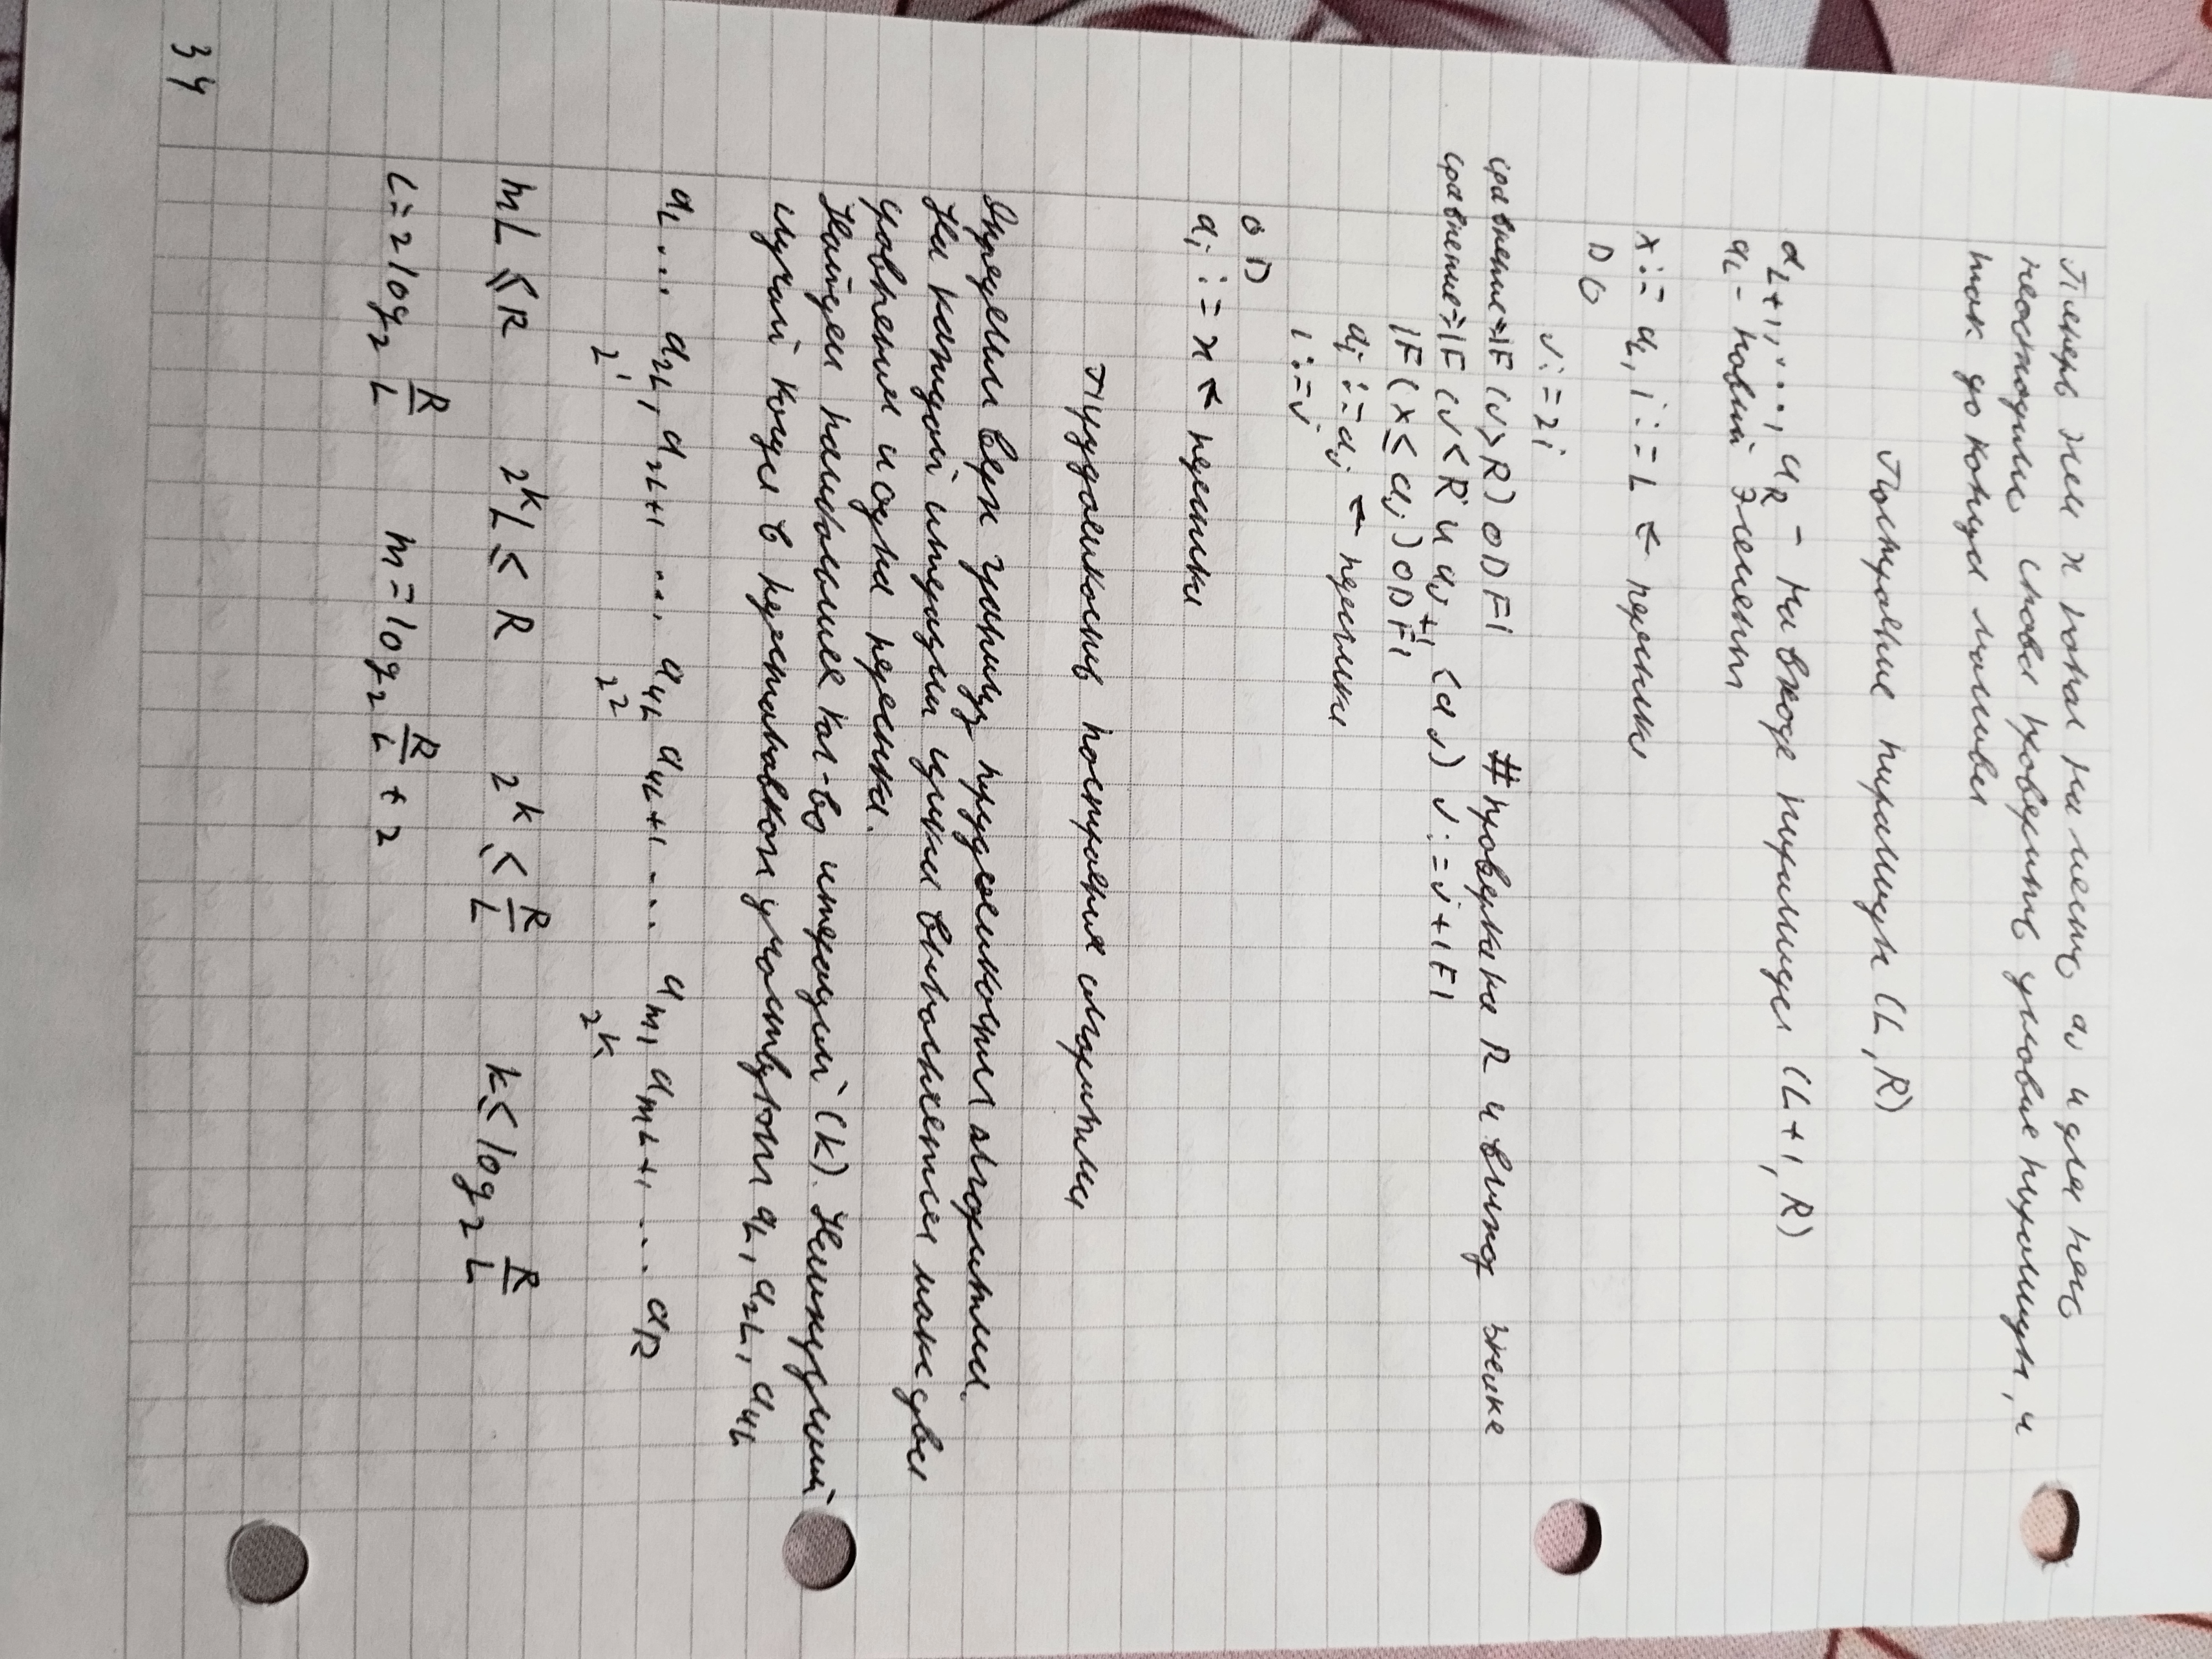 Теперь эл x попал на место aj и для него
необходимо снова проверить условие пирамиды, и
так до конца массива
Построение пирамиды (L, R)
aL+1, ..., aR - на входе пирамида (L+1, R)
aL - новый элемент
x := aL, i := L ← пересылка
DO
j := 2i
сравнение ⇒ IF (j > R) OD FI # проверка на R и выход
сравнение ⇒ IF (j < R и aj+1 < aj) j := j+1 FI
IF (x ≤ aj) OD FI
ai := aj ← пересылка
i := j
OD
ai := x ← пересылка
Трудоемкость построения алгоритма
Определим верх границу трудоемкости алгоритма.
На каждой итерации цикла выполняется макс два
сравнения и одна пересылка.
Найдем наибольшее кол-во итераций (k). Наихудший
случай когда в перестановках участвуют aL, a2L, a4L
aL ... a2L, a2L+1 ... a4L a4L+1 ... amL amL+1 ... aR
2^1 2^2 2^k
mL ≤ R 2^k L ≤ R 2^k ≤ R/L k ≤ log2 R/L
C = 2 log2 R/L m = log2 R/L + 2
34